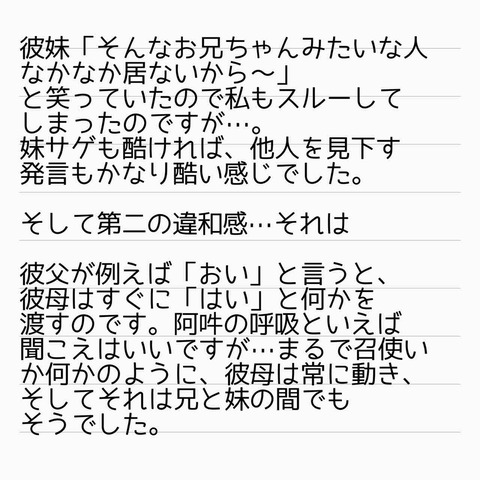 彼妹「そんなお兄ちゃんみたいな人
なかなか居ないから～」
と笑っていたので私もスルーして
しまったのですが…。
妹サゲも酷ければ、他人を見下す
発言もかなり酷い感じでした。
そして第二の違和感…それは
彼父が例えば「おい」と言うと、
彼母はすぐに「はい」と何かを
渡すのです。阿吽の呼吸といえば
聞こえはいいですが…まるで召使い
か何かのように、彼母は常に動き、
そしてそれは兄と妹の間でも
そうでした。